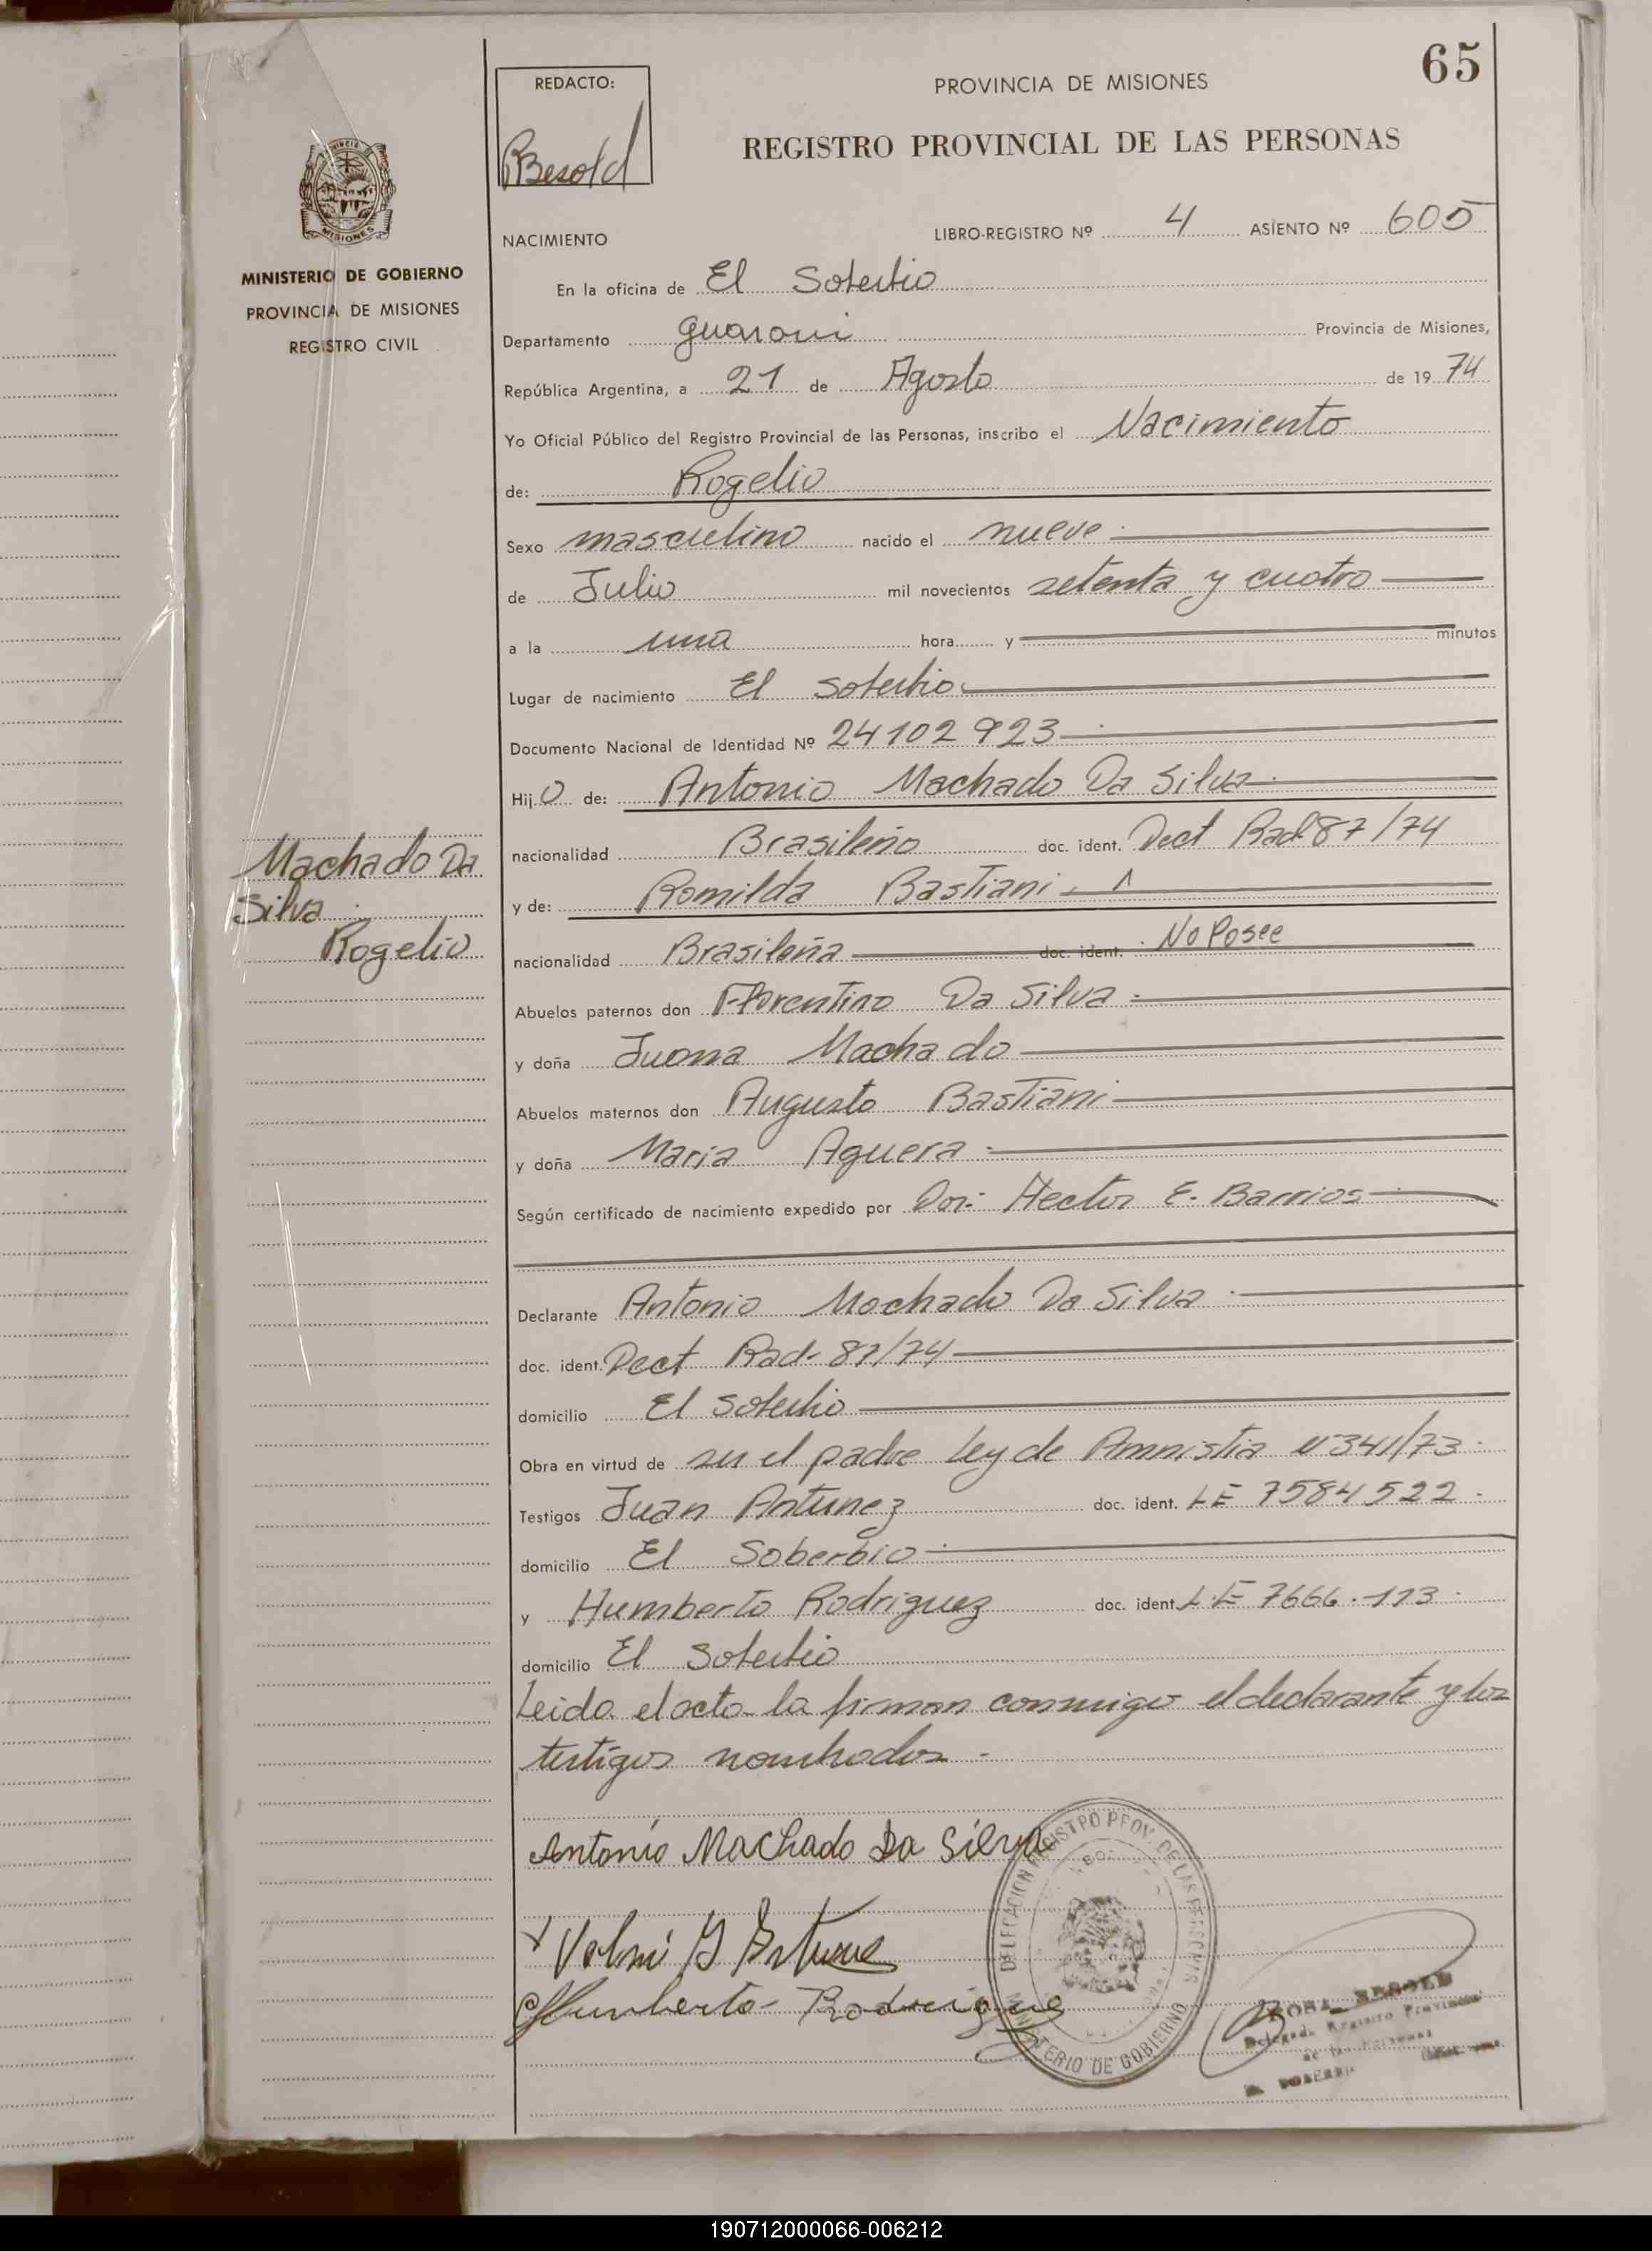 65
REDACTO:
Besold
PROVINCIA DE MISIONES
REGISTRO PROVINCIAL DE LAS PERSONAS
MISIONES
MINISTERIO DE GOBIERNO
PROVINCIA DE MISIONES
REGISTRO CIVIL
NACIMIENTO
LIBRO-REGISTRO Nº 4 ASIENTO Nº 605
En la oficina de El Soberbio
Departamento Guarani Provincia de Misiones,
República Argentina, a 21 de Agosto de 1974
Yo Oficial Público del Registro Provincial de las Personas, inscribo el Nacimiento
de: Rogelio
Sexo masculino nacido el nueve
de Julio mil novecientos setenta y cuatro
a la una hora y minutos
Lugar de nacimiento El Soberbio
Documento Nacional de Identidad Nº 24102923
Hijo de: Antonio Machado Da Silva
nacionalidad Brasileño doc. ident. Dect Rad 87/74
y de: Romilda Bastiani
nacionalidad Brasileña doc. ident. No Posee
Machado Da
Silva
Rogelio
Abuelos paternos don Florentino Da Silva
y doña Juana Machado
Abuelos maternos don Augusto Bastiani
y doña Maria Aguera
Según certificado de nacimiento expedido por Dor: Hector E. Barrios
Declarante Antonio Machado Da Silva
doc. ident. Dect Rad- 87/74
domicilio El Soberbio
Obra en virtud de ser el padre Ley de Amnistia Nº 341/73
Testigos Juan Antunez doc. ident. LE 7584522
domicilio El Soberbio
y Humberto Rodriguez doc. ident. L.E 7666.113
domicilio El Soberbio
Leida el acta la firman conmigo el declarante y los
testigos nombrados -
Antonio Machado Da Silva
Humberto Rodriguez
DELEGACION REGISTRO PROV. DE LAS PERSONAS
MINISTERIO DE GOBIERNO
ROSA BESOLD
Delegada Registro Provincial
de las Personas
190712000066-006212